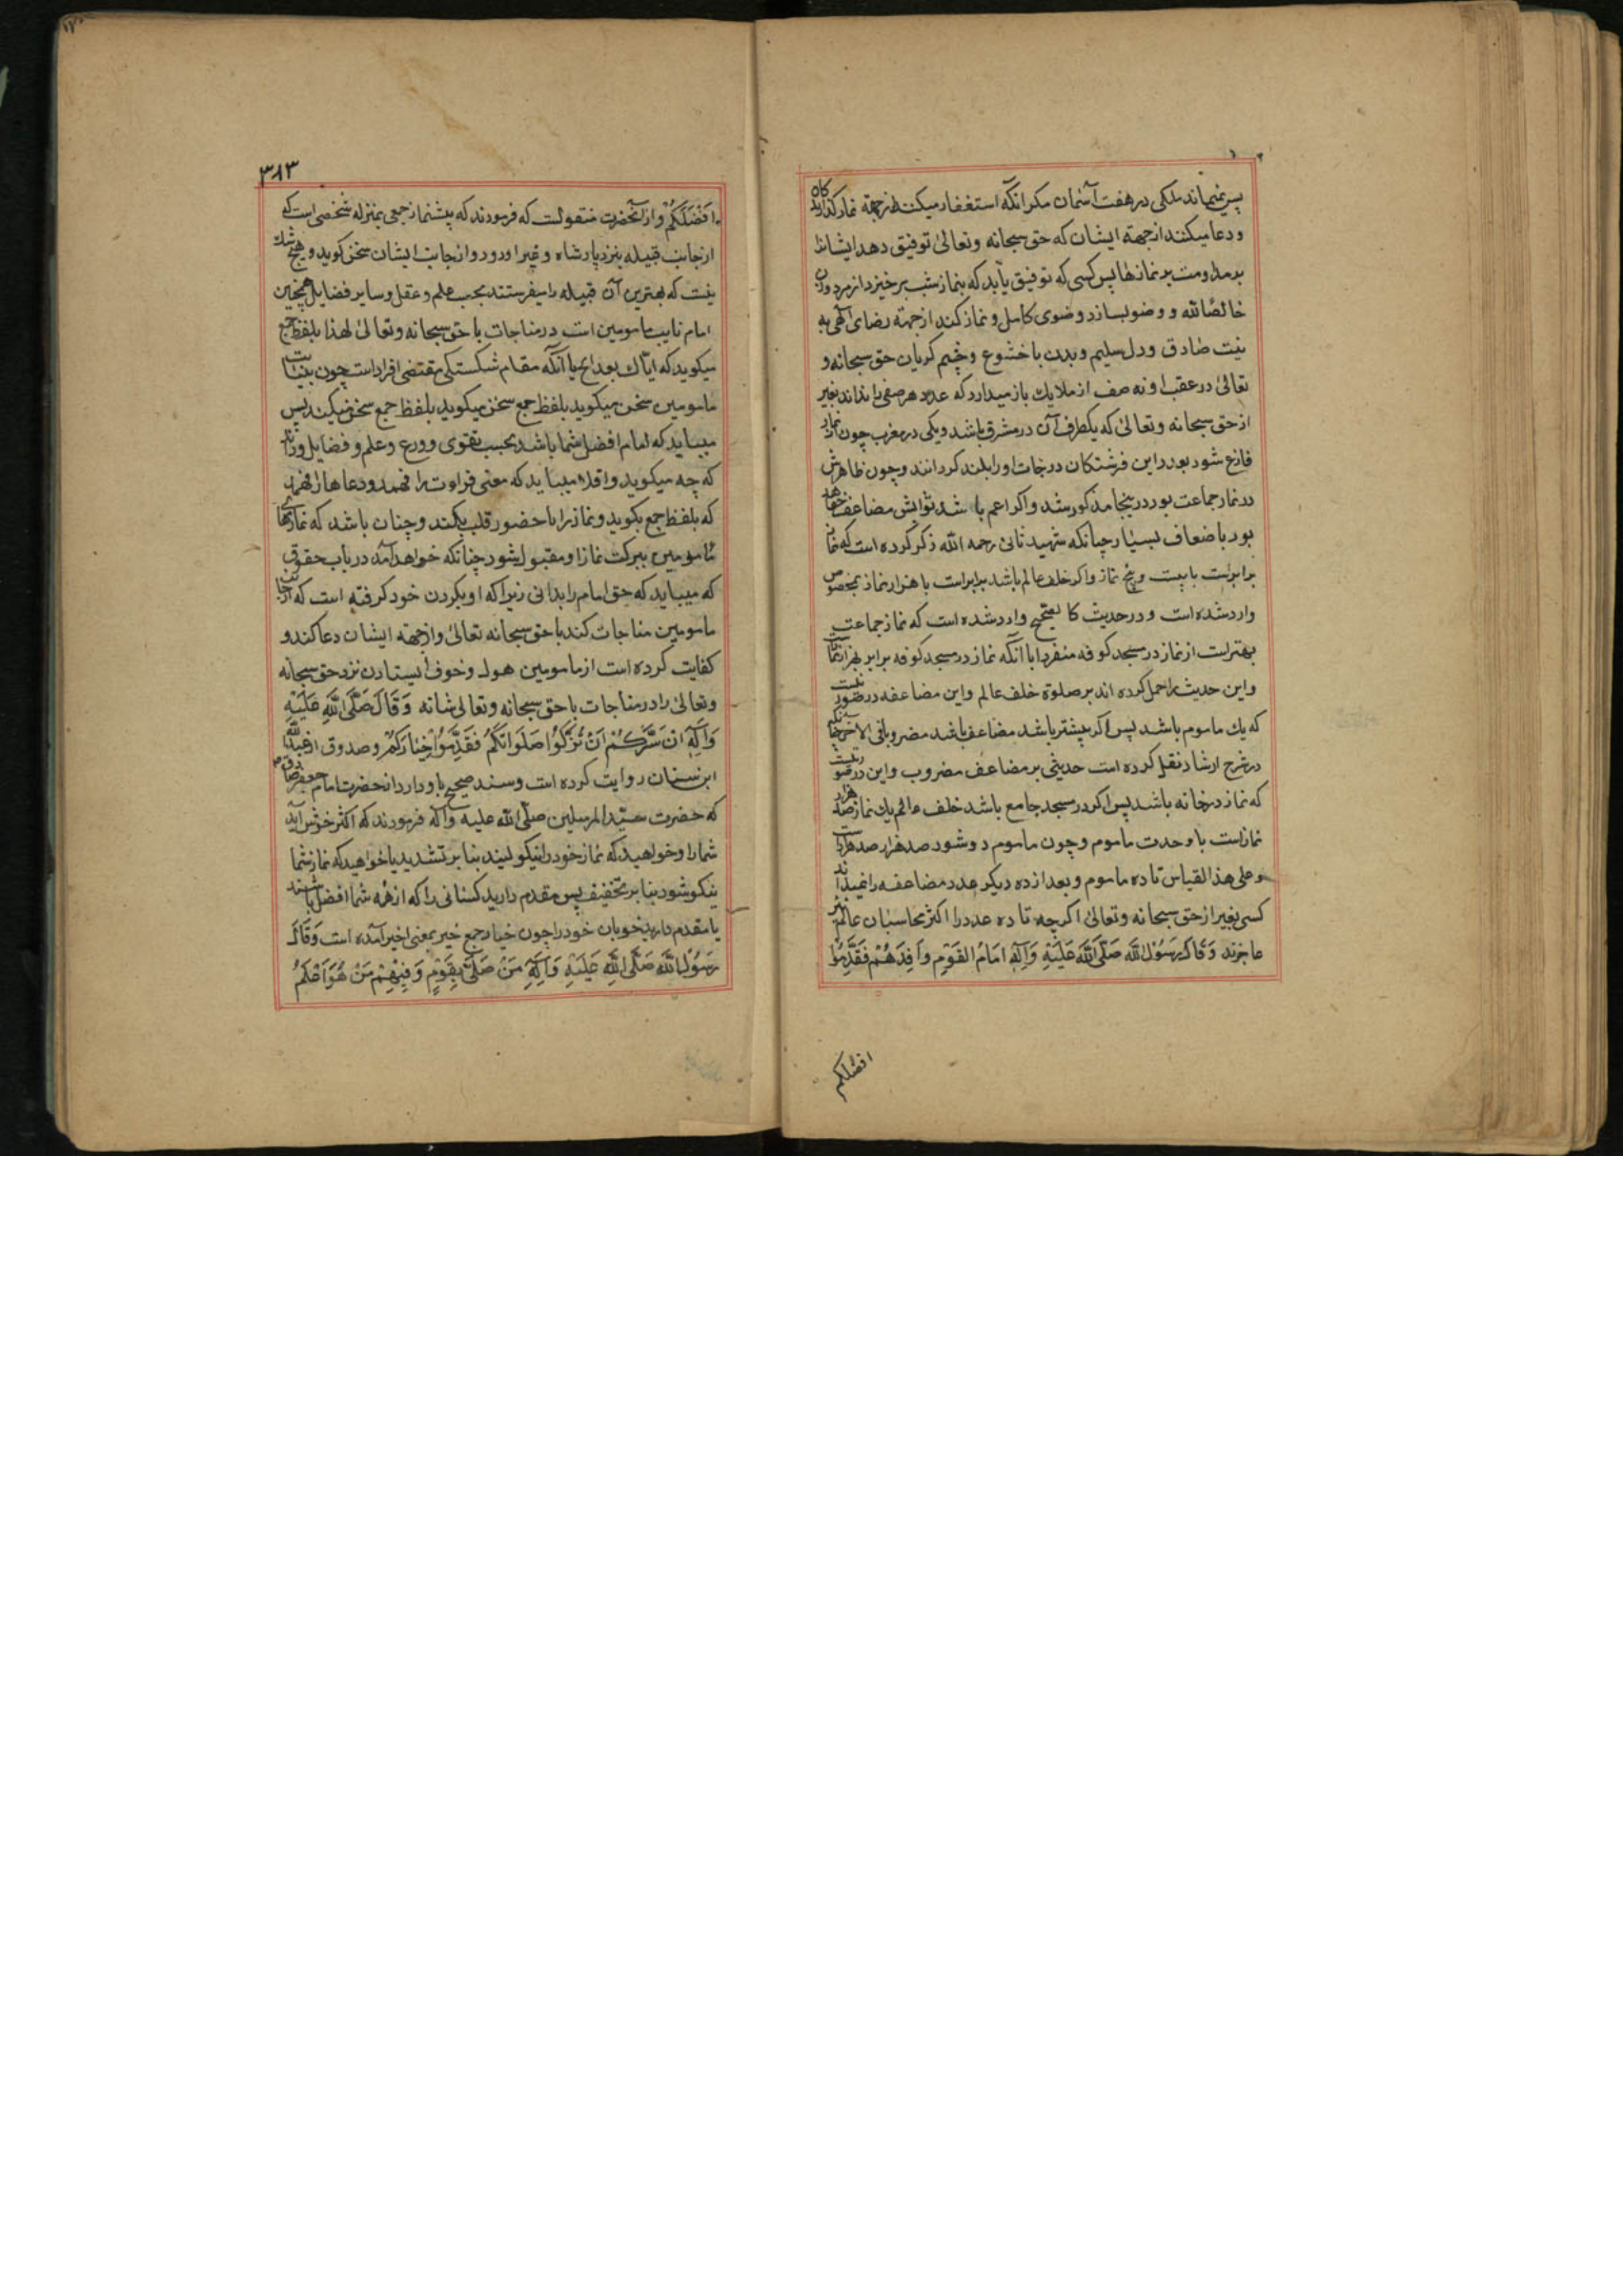 پس نمیماند ملکی در هفت آسمان مکر انکه استغفار میکنند از جهة نماز کذارند کان
و دعا میکنند از جهة ایشان که حق سبحانه وتعالی توفیق دهد ایشانرا
بر مداومت بر نمازها پس کسی که توفیق یابد که بنماز شب برخیزد از مرد وزن
خالصًا لله و وضو بسازد وضوی کامل و نماز کند از جهة رضای الهی به
نیت صادق ودل سلیم وبدن با خشوع وچشم کریان حق سبحانه و
تعالی در عقب او نه صف از ملایك باز میدارد که عدد هر صفی را نداند بغیر
از حق سبحانه وتعالی که یکطرف آن در مشرق باشد ویکی در مغرب چون از نماز
فارغ شود بعدد این فرشتکان درجات او را بلند کردانند وچون ظاهرش
در نماز جماعت بود در ینجا مذکور شد واکر اعم باشد ثوابش مضاعف خواهد
بود باضعاف بسیار چنانکه شهید ثانی رحمه الله ذکر کرده است که نماز
برابرست با بیست وپنج نماز واکر خلف عالم باشد برابرست با هزار نماز بخصوص
وارد شده است ودر حدیث کا لصحیح وارد شده است که نماز جماعت
بهتر است از نماز در مسجد کوفه منفردا با آنکه نماز در مسجد کوفه برابر هزار نماز است
واین حدیث را حمل کرده اند بر صلوة خلف عالم واین مضاعفه در صورتیست
که یك ماموم باشد پس اکر بیشتر باشد مضاعف باشد مضروبا فی الآخر چنانکه
در شرح ارشاد نقل کرده است حدیثی بر مضاعف مضروب واین در صورتیست
که نماز در خانه باشد پس اکر در مسجد جامع باشد خلف عالم یك نماز صد هزار
نماز است با وحدت ماموم وچون ماموم دو شود صد هزار صد هزار است
وعلی هذا القیاس تا ده ماموم وبعد از ده دیکر عدد مضاعفه را نمیداند
کسی بغیر از حق سبحانه وتعالی اکرچه تا ده عدد را اکثر محاسبان عالم نیز
عاجزند وَقَالَ رَسُوْلُ اللهِ صَلَّی اللهُ عَلَیْهِ وَآلِهِ اِمَامُ القَوْمِ وَافِدُهُمْ فَقَدِّمُوا
افضلکم
۳۸۳
اَفْضَلَکُمْ واز آنحضرت منقولست که فرمودند که پیشنماز جمعی بمنزله شخصی است که
از جانب قبیله بنزد پادشاه وغیر او رود واز جانب ایشان سخن کوید وهیچ شك
نیست که بهترین آن قبیله را میفرستند بحسب علم وعقل وسایر فضایل همچنین
امام نایب مامومین است در مناجات با حق سبحانه وتعالی لهذا بلفظ جمع
میکوید که ایاك نعبد الخ با آنکه مقام شکستکی مقتضی افراد است چون بنیابت
مامومین سخن میکوید بلفظ جمع سخن میکوید بلفظ جمع سخن میکند پس
میباید که امام افضل شما باشد بحسب تقوی وورع وعلم وفضایل وداند
که چه میکوید واقلا میباید که معنی قراءت را فهمد ودعاها را فهمد
که بلفظ جمع بکوید ونماز را با حضور قلب بکند وچنان باشد که نمازهای
مامومین ببرکت نماز او مقبول شود چنانکه خواهد آمد در باب حقوق
که میباید که حق امام را بدانی زیرا که او بکردن خود کرفته است که از جانب
مامومین مناجات کند با حق سبحانه تعالی واز جهة ایشان دعا کند و
کفایت کرده است از مامومین هول وخوف ایستادن نزد حق سبحانه
وتعالی را در مناجات با حق سبحانه وتعالی شانه وَقَالَ صَلَّی اللهِ عَلَیْهِ
وَآلِهِ اِنْ سَرَّکُمْ اَنْ تُزَکُّوا صَلَوَاتَکُمْ فَقَدِّمُوْا خِیَارَکُمْ وصدوق از عبدالله
ابن سنان روایت کرده است وسند صحیح باو دارد از حضرت امام جعفر صادق ص
که حضرت سید المرسلین صلی الله علیه وآله فرمودند که اکثر خوش آید
شما را وخواهید که نماز خود را نیکو کنید بنابر تشدید یا خواهید که نماز شما
نیکو شود بنابر تخفیف پس مقدم دارید کسانی را که از همه شما افضل باشند
یا مقدم دارید خوبان خود را چون خیار جمع خیر بمعنی اخیر آمده است وَقَالَ
رَسُوْلُ اللهِ صَلَّی اللهِ عَلَیْهِ وَآلِهِ مَنْ صَلَّی بِقَوْمٍ وَفِیْهِمْ مَنْ هُوَ اَعْلَمُ